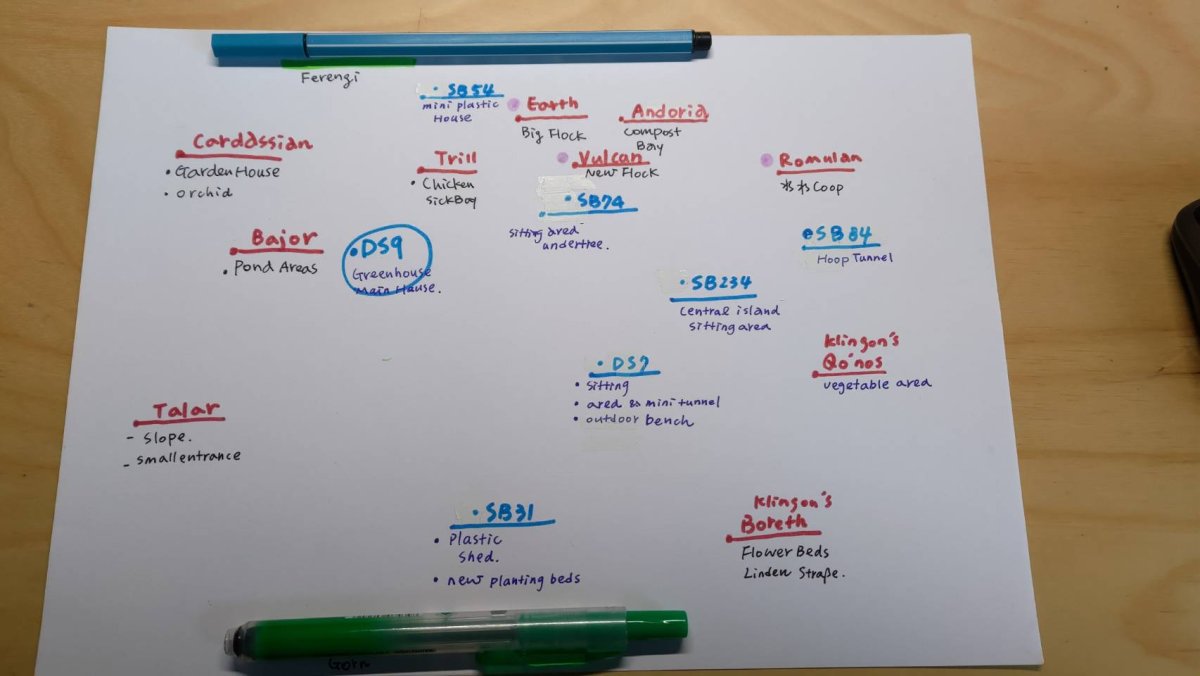 Ferengi
• SB54
mini plastic
House
Earth
Big Flock
Andoria
compost
Bay
Cardassian
• GardenHouse
• orchid
Trill
• Chicken
SickBay
Vulcan
New Flock
Romulan
Coop
• SB74
sitting area
undertree.
Bajor
• Pond Areas
• DS9
Greenhouse
Main House.
• SB84
Hoop Tunnel
• SB234
Central island
sitting area
Klingon's
Qo'nos
vegetable area
• DS7
• sitting
• area & mini tunnel
• outdoor bench
Talar
- slope.
- small entrance
• SB31
• Plastic
shed.
• new planting beds
Klingon's
Boreth
Flower Beds
Linden Straße.
Gorn